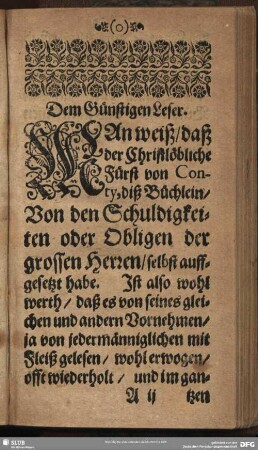 (o)
Dem Günstigen Leser.
MAn weiß/daß
der Christlöbliche
Fürst von Con-
ty, diß Büchlein/
Von den Schuldigkei-
ten oder Obligen der
grossen Herren/selbst auff-
gesetzt habe. Ist also wohl
werth/ daß es von seines glei-
chen und andern Vornehmen/
ja von jedermänniglichen mit
Fleiß gelesen/ wohl erwogen/
offt wiederholt/ und im gan-
A ij tzen
SLUB
DFG